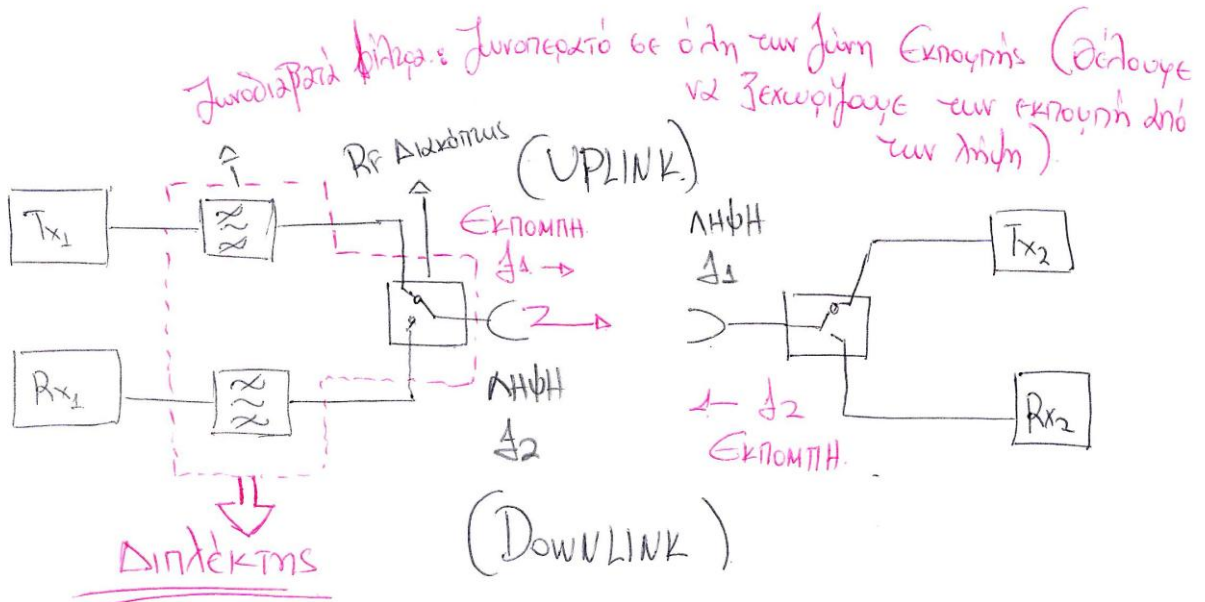 Ζωνοδιαβατά φίλτρα: Ζωνοπερατό σε όλη την ζώνη Εκπομπής (Θέλουμε
να ξεχωρίζουμε την εκπομπή από
την λήψη)
RF Διακόπτης
(UPLINK)
Tx1
ΕΚΠΟΜΠΗ
f1
ΛΗΨΗ
f1
Tx2
Rx1
ΛΗΨΗ
f2
f2
ΕΚΠΟΜΠΗ
Rx2
(DOWNLINK)
Διπλέκτης